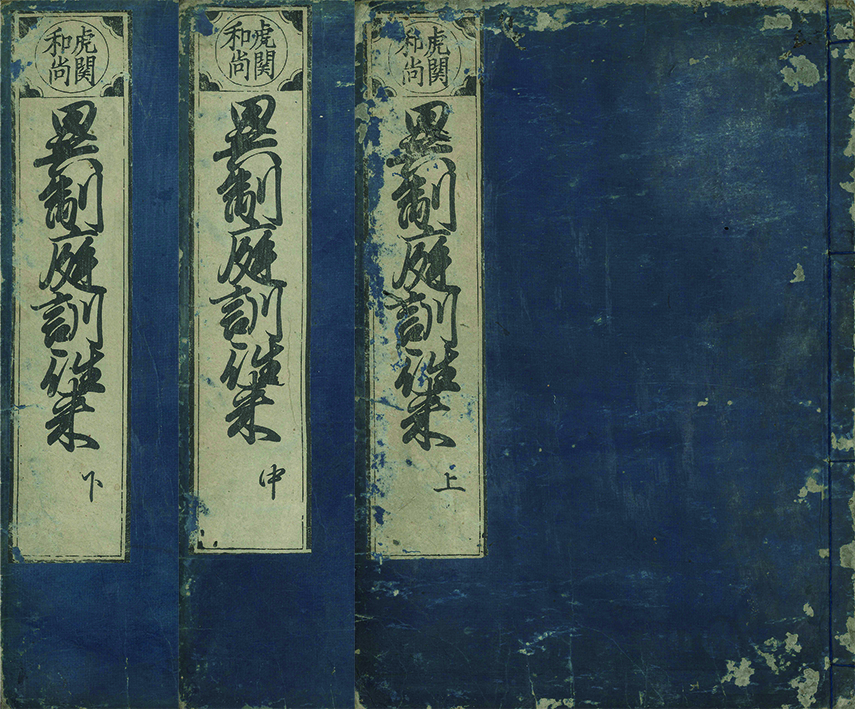 虎関
和尚
異制庭訓往来
上
虎関
和尚
異制庭訓往来
中
虎関
和尚
異制庭訓往来
下